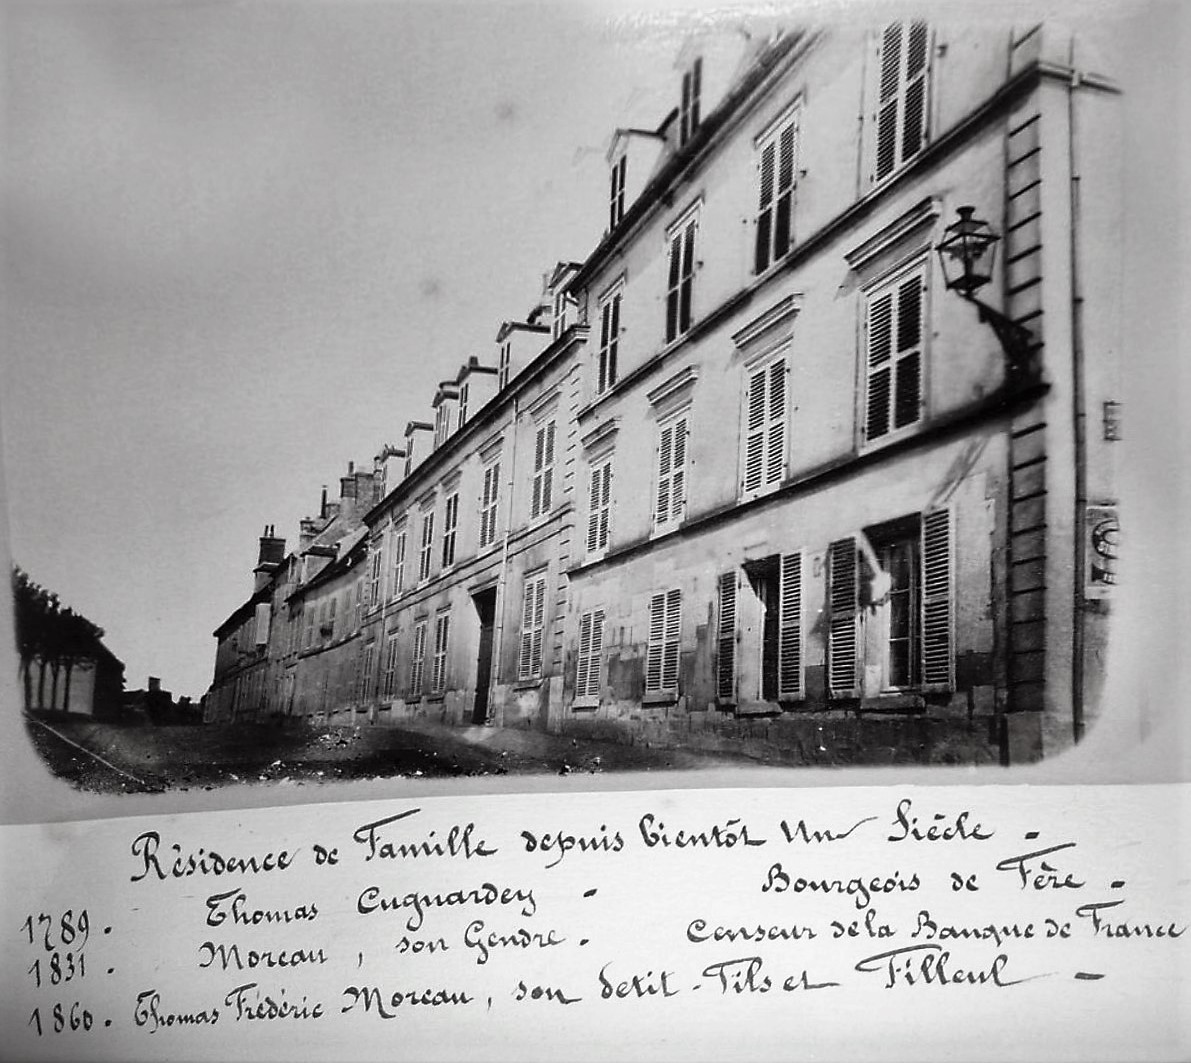 Résidence de Famille depuis bientôt Un Siècle -
1789. Thomas Cugnardey - Bourgeois de Fère -
1831. Moreau, son Gendre. Censeur de la Banque de France
1860. Thomas Frédéric Moreau, son Petit-Fils et Filleul -